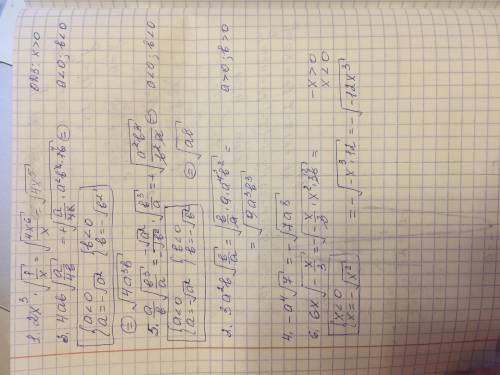 1. 2x³·√(1/x) = √(4x⁶/x) = √(4x⁵) ОДЗ: x>0
3. 4ab√(a/4b) = +√(a/4b · a²b²·16) ⊜ a<0; b<0
{a<0 a=-√a² {b<0 b=-√b²
⊜ √(4a³b)
5. a/b √(b³/a) = -√a²/-√b² · √(b³/a) = +√(a²b³/b²a) ⊜ a<0; b<0
{a<0 a=-√a² {b<0 b=-√b² ⊜ √(ab)
2. 3a²b√(b/a) = √(b/a · 9·a⁴b²) = a>0; b>0
= √(9a³b³)
4. -a⁴√7 = -√(7a⁸)
6. 6x√(-x/3) = -√(-x/3 · x²·36) = -x>0
{x<0 x=-√x² x<0
= -√(-x³·12) = -√(-12x³)